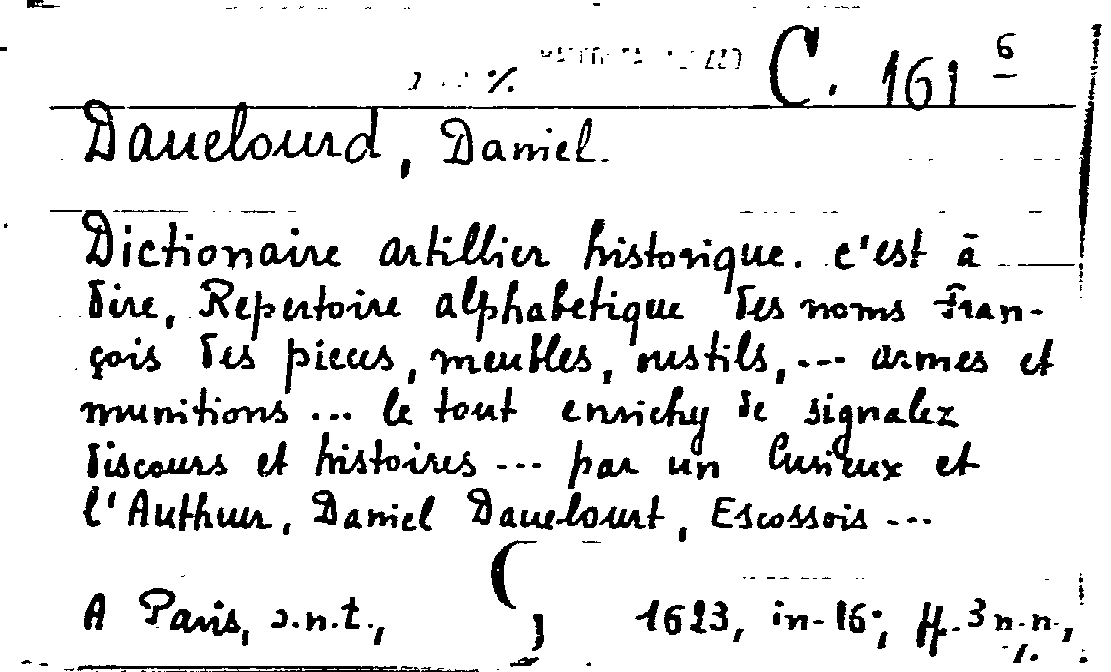 C. 161 6
Dauelourd, Daniel.
Dictionaire artillier historique. c'est à
dire, Repertoire alphabetique des noms Fran-
çois des pieces, meubles, oustils, --- armes et
munitions ... le tout enrichy de signalez
discours et histoires --- par un Curieux et
l'Autheur, Daniel Dauelourt, Escossois ---
A Paris, s.n.t., 1623, in-16°, ff. 3 n.n.,
./.